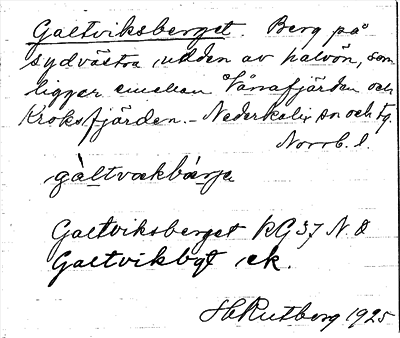 Galtviksberget. Berg på
sydvästra udden av halvön, som
ligger emellan Vånafjärden och
Kroksfjärden. - Nederkalix sn och tg.
Norrb. l.
gàltvækbærje
Galtviksberget RG 37 N Ö
Galtvikbgt ek.
H Rutberg 1925